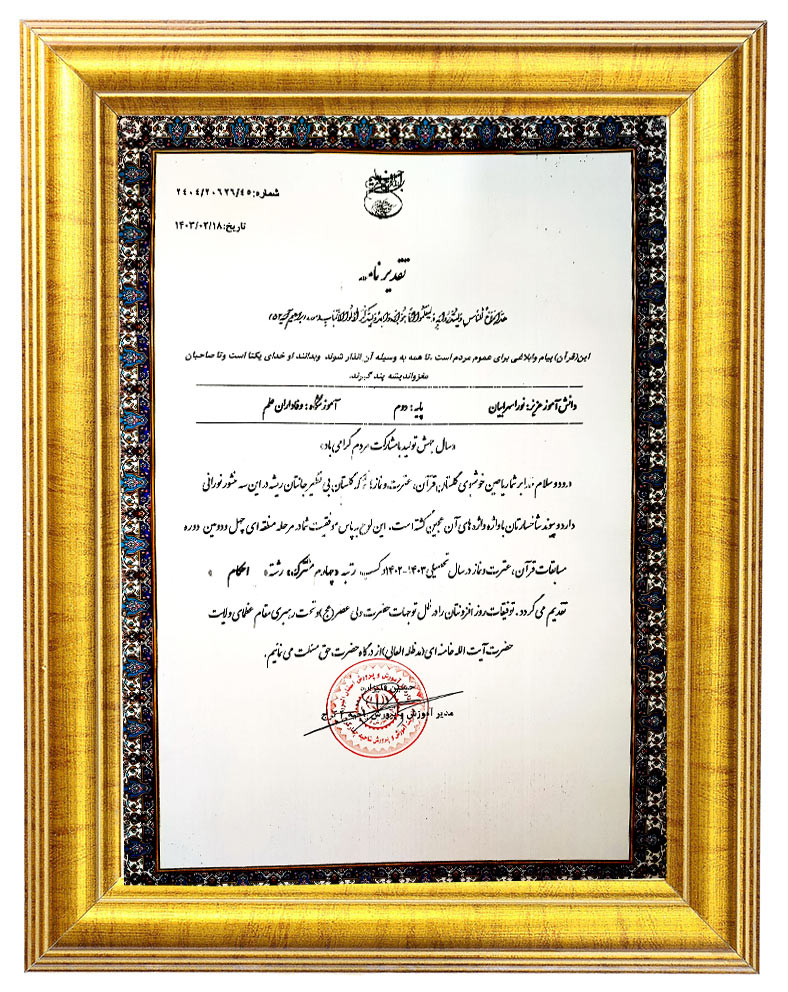 شماره: ۲۴۰۴/۲۰۶۲۶/۴۵
تاریخ: ۱۴۰۳/۰۲/۱۸
تقدیر نامه
این(قرآن) پیام وابلاغی برای عموم مردم است ،تا همه به وسیله آن انذار شوند وبدانند او خدای یکتا است وتا صاحبان
مغزواندیشه پند گیرند.
دانش آموز عزیز: نورا سهرابیان پایه: دوم آموزشگاه: وفاداران علم
«سال جهش تولید با مشارکت مردم گرامی باد»
درود و سلام خدا بر شما ریاحین خوشبوی گلستان قرآن، عترت و نماز که گلستان بی نظیر جانتان ریشه در این سه منشور نورانی
دارد و پیوند شاخسارتان با واژه واژه های آن عجین گشته است. این لوح به پاس موفقیت شما در مرحله منطقه ای چهل و دومین دوره
مسابقات قرآن، عترت و نماز در سال تحصیلی ۱۴۰۳-۱۴۰۲ و کسب رتبه «چهارم مشترک» رشته «احکام»
تقدیم می گردد. توفیقات روز افزونتان را در ظل توجهات حضرت ولی عصر(عج) و تحت رهبری مقام عظمای ولایت
حضرت آیت الله خامنه ای(مدظله العالی) از درگاه حضرت حق مسئلت می نمائیم.
مدیر آموزش و پرورش